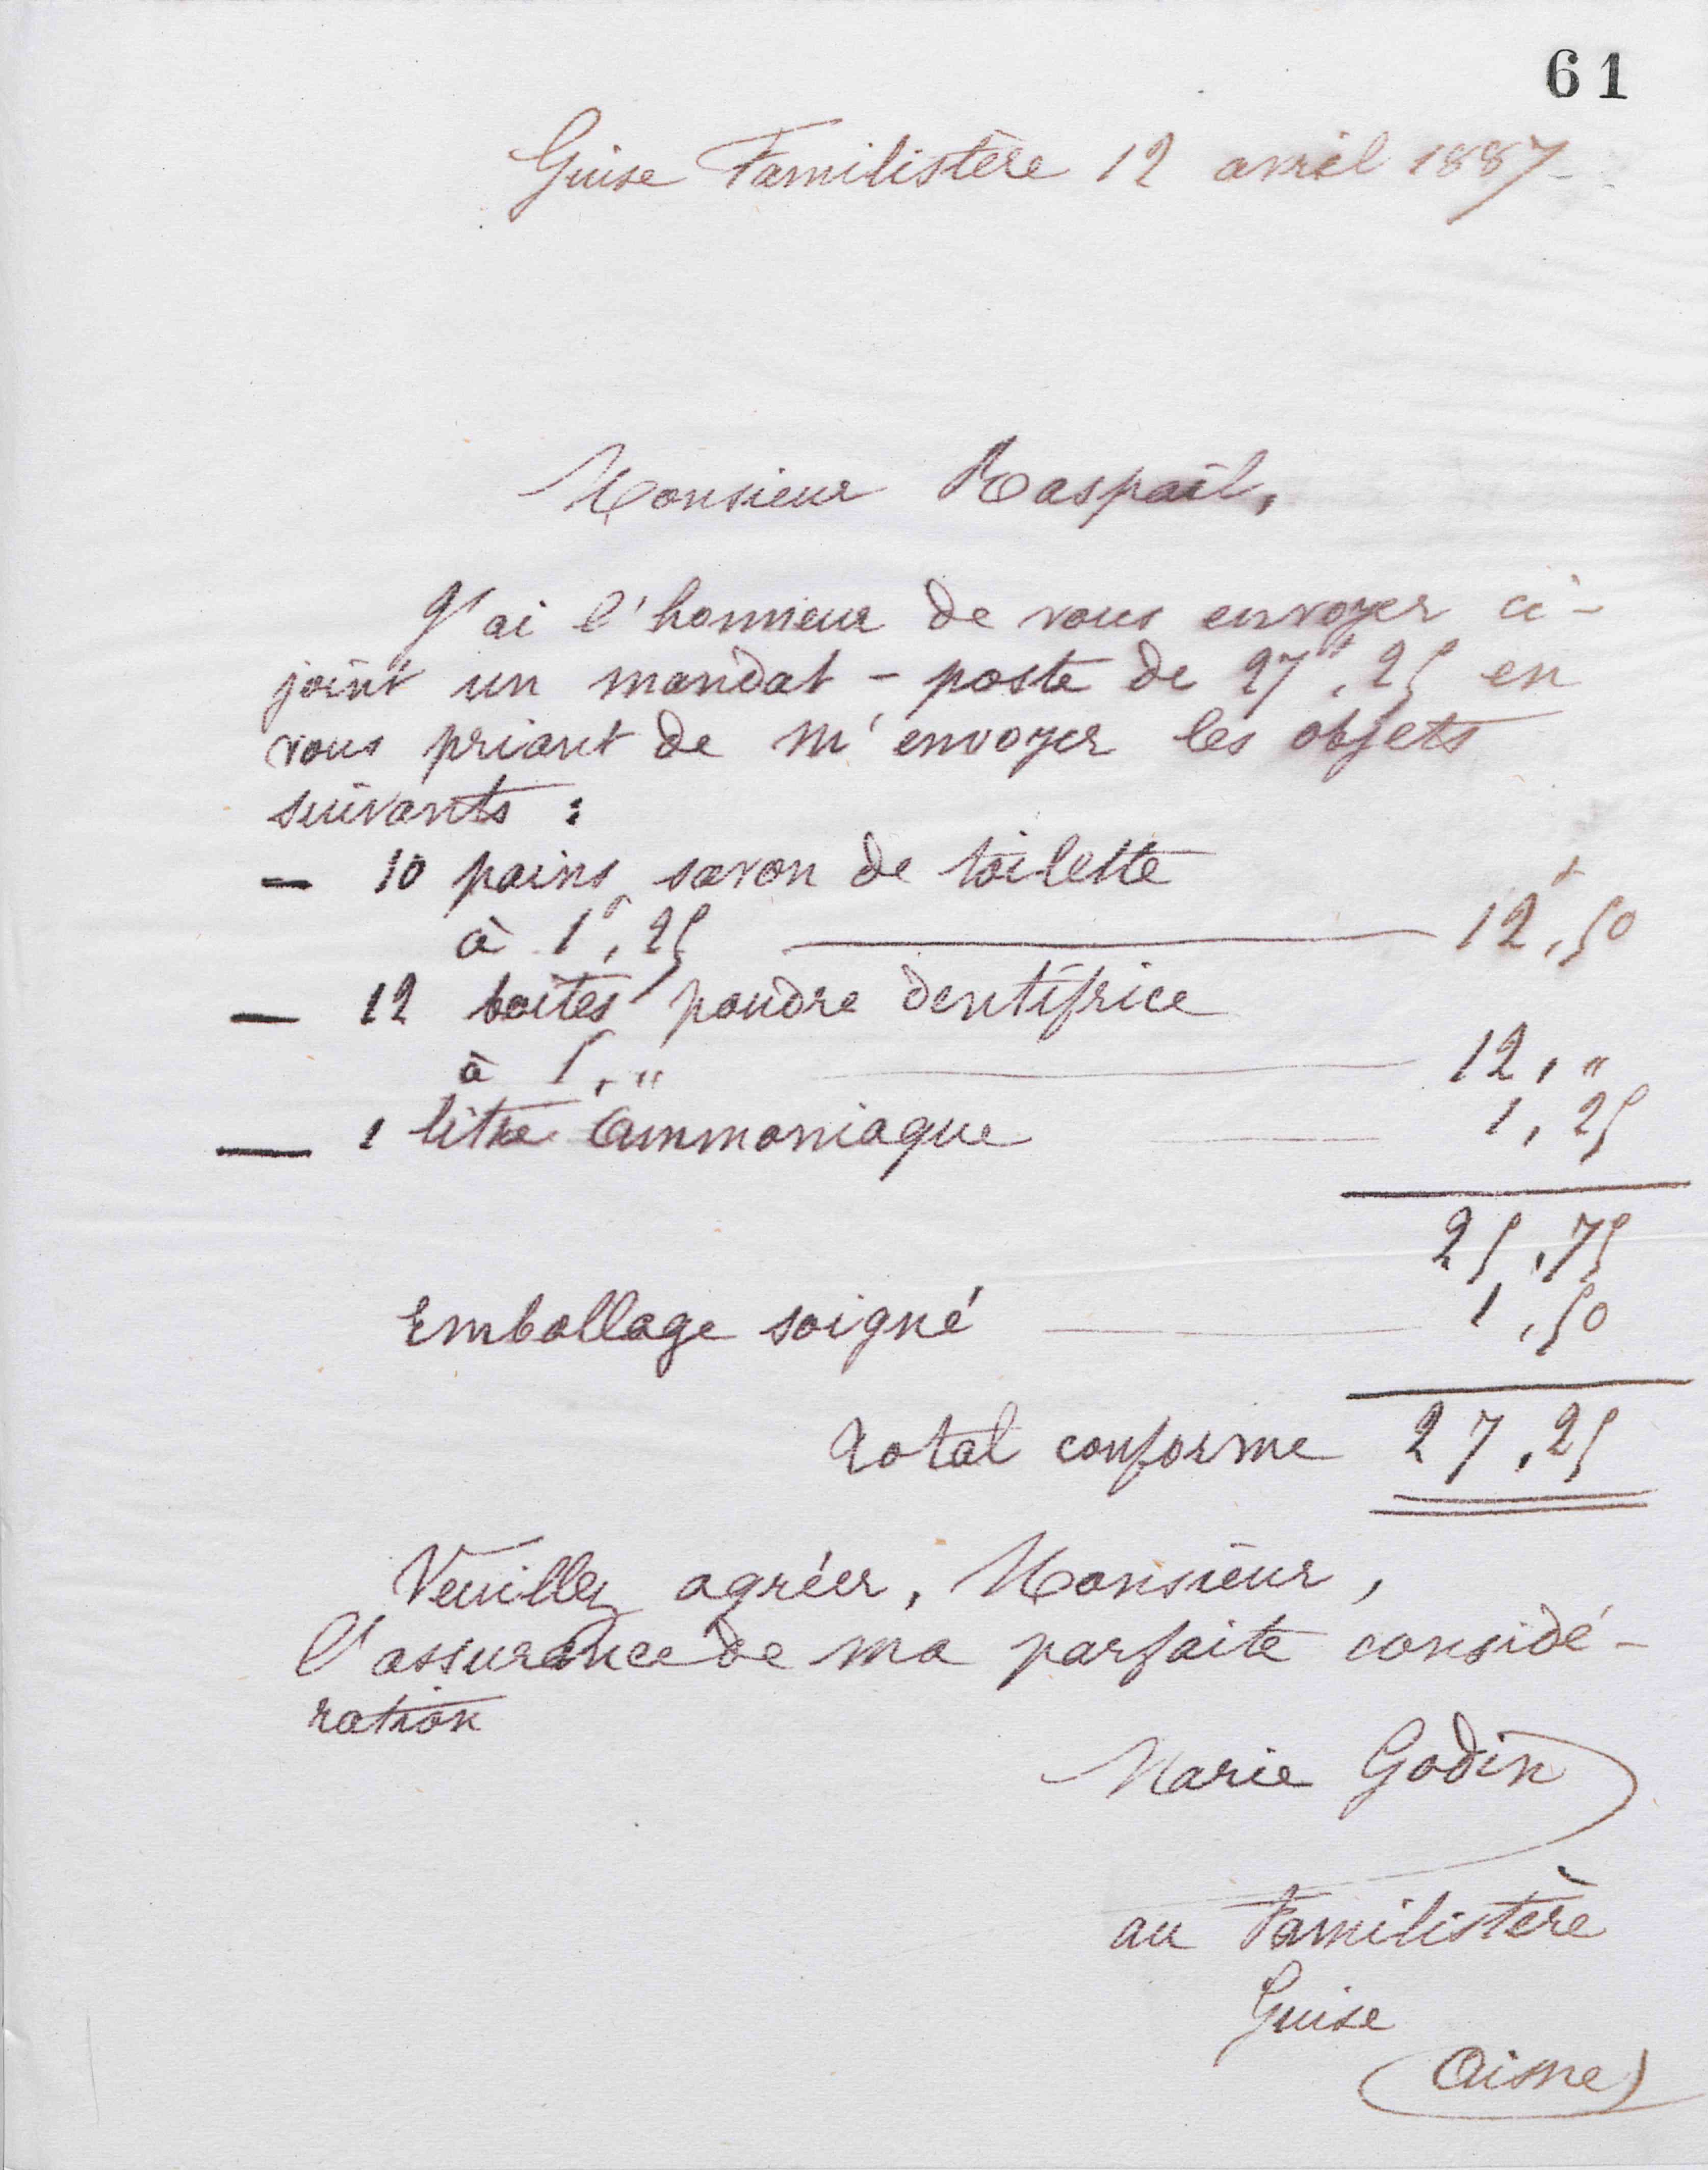 61
Guise Familistère 12 avril 1887
Monsieur Raspail,
J'ai l'honneur de vous envoyer ci-
joint un mandat-poste de 27f,25 en
vous priant de m'envoyer les objets
suivants :
— 10 pains savon de toilette
à 1f,25 — 12f,50
— 12 boîtes poudre dentifrice
à 1," — 12,"
— 1 litre Ammoniaque — 1,25
25,75
Emballage soigné — 1,50
Total conforme 27,25
Veuillez agréer, Monsieur,
l'assurance de ma parfaite considé-
ration
Marie Godin
au Familistère
Guise
(Aisne)